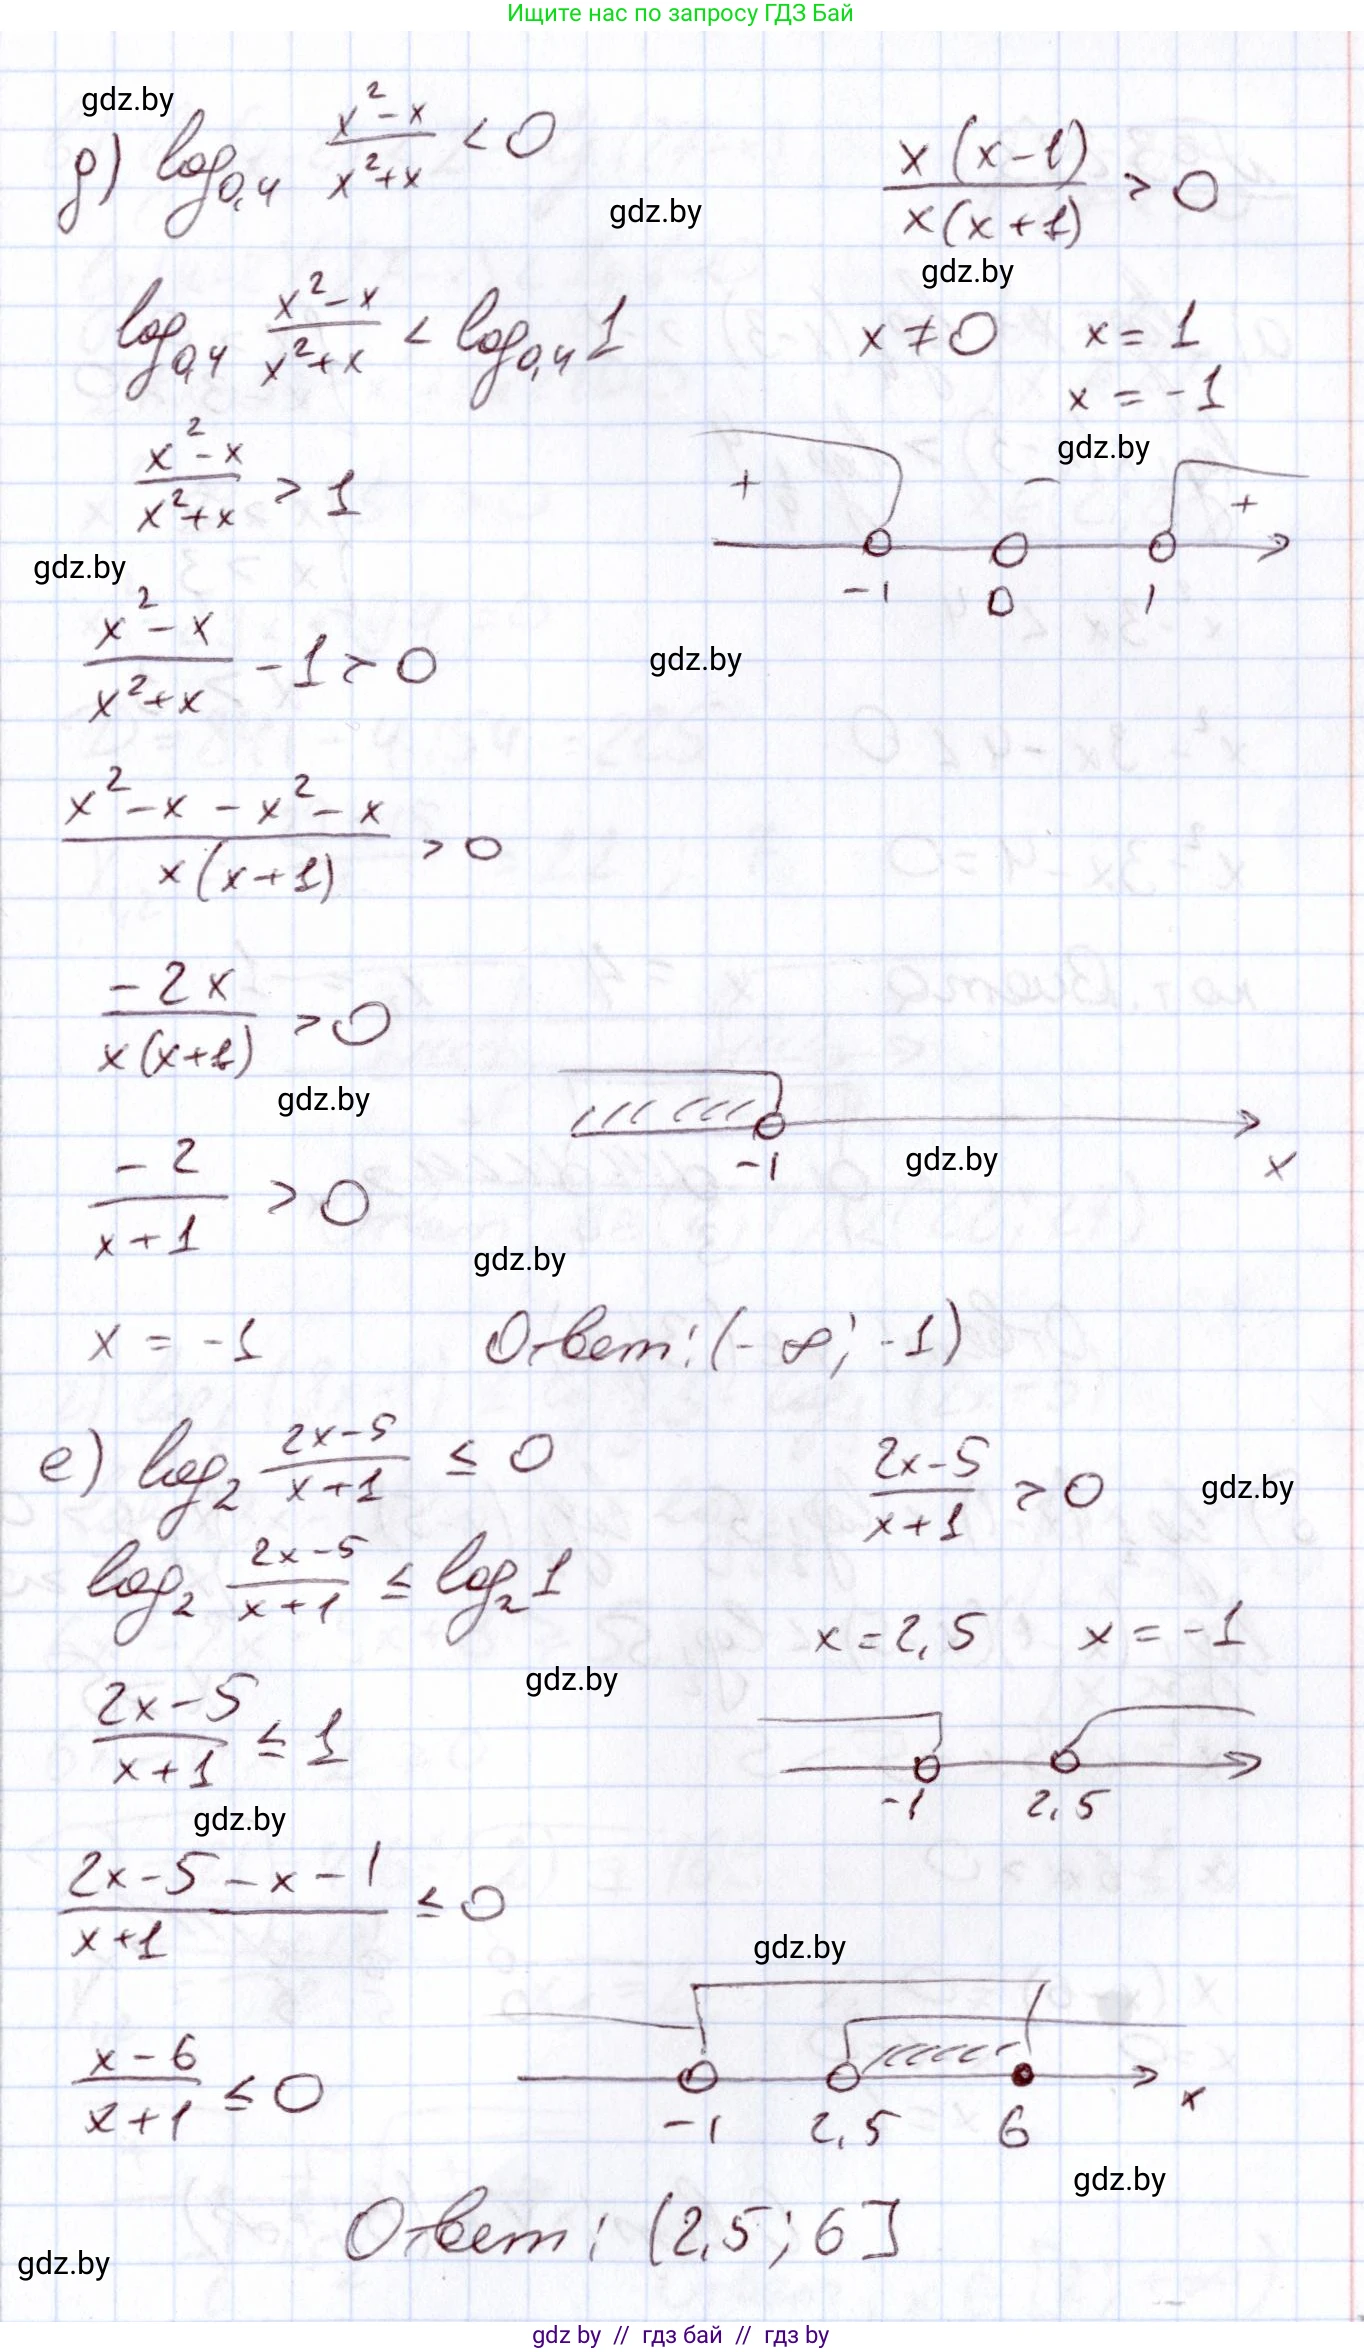 Ищите нас по запросу ГДЗ Бай
gdz.by
д) log₀,₄ (x²-x)/(x²+x) < 0
gdz.by
x(x-1)/x(x+1) > 0
gdz.by
log₀,₄ (x²-x)/(x²+x) < log₀,₄ 1
x ≠ 0 x = 1
x = -1
gdz.by
(x²-x)/(x²+x) > 1
+ - +
-1 0 1
gdz.by
(x²-x)/(x²+x) - 1 > 0
gdz.by
(x²-x-x²-x)/x(x+1) > 0
-2x/x(x+1) > 0
gdz.by
-1 x
gdz.by
-2/(x+1) > 0
gdz.by
x = -1
Ответ: (-∞; -1)
е) log₂ (2x-5)/(x+1) ≤ 0
(2x-5)/(x+1) > 0
gdz.by
log₂ (2x-5)/(x+1) ≤ log₂ 1
x = 2,5 x = -1
gdz.by
(2x-5)/(x+1) ≤ 1
-1 2,5
gdz.by
(2x-5-x-1)/(x+1) ≤ 0
gdz.by
(x-6)/(x+1) ≤ 0
-1 2,5 6 x
gdz.by
Ответ: (2,5; 6]
gdz.by
gdz by // гдз бай // гдз by